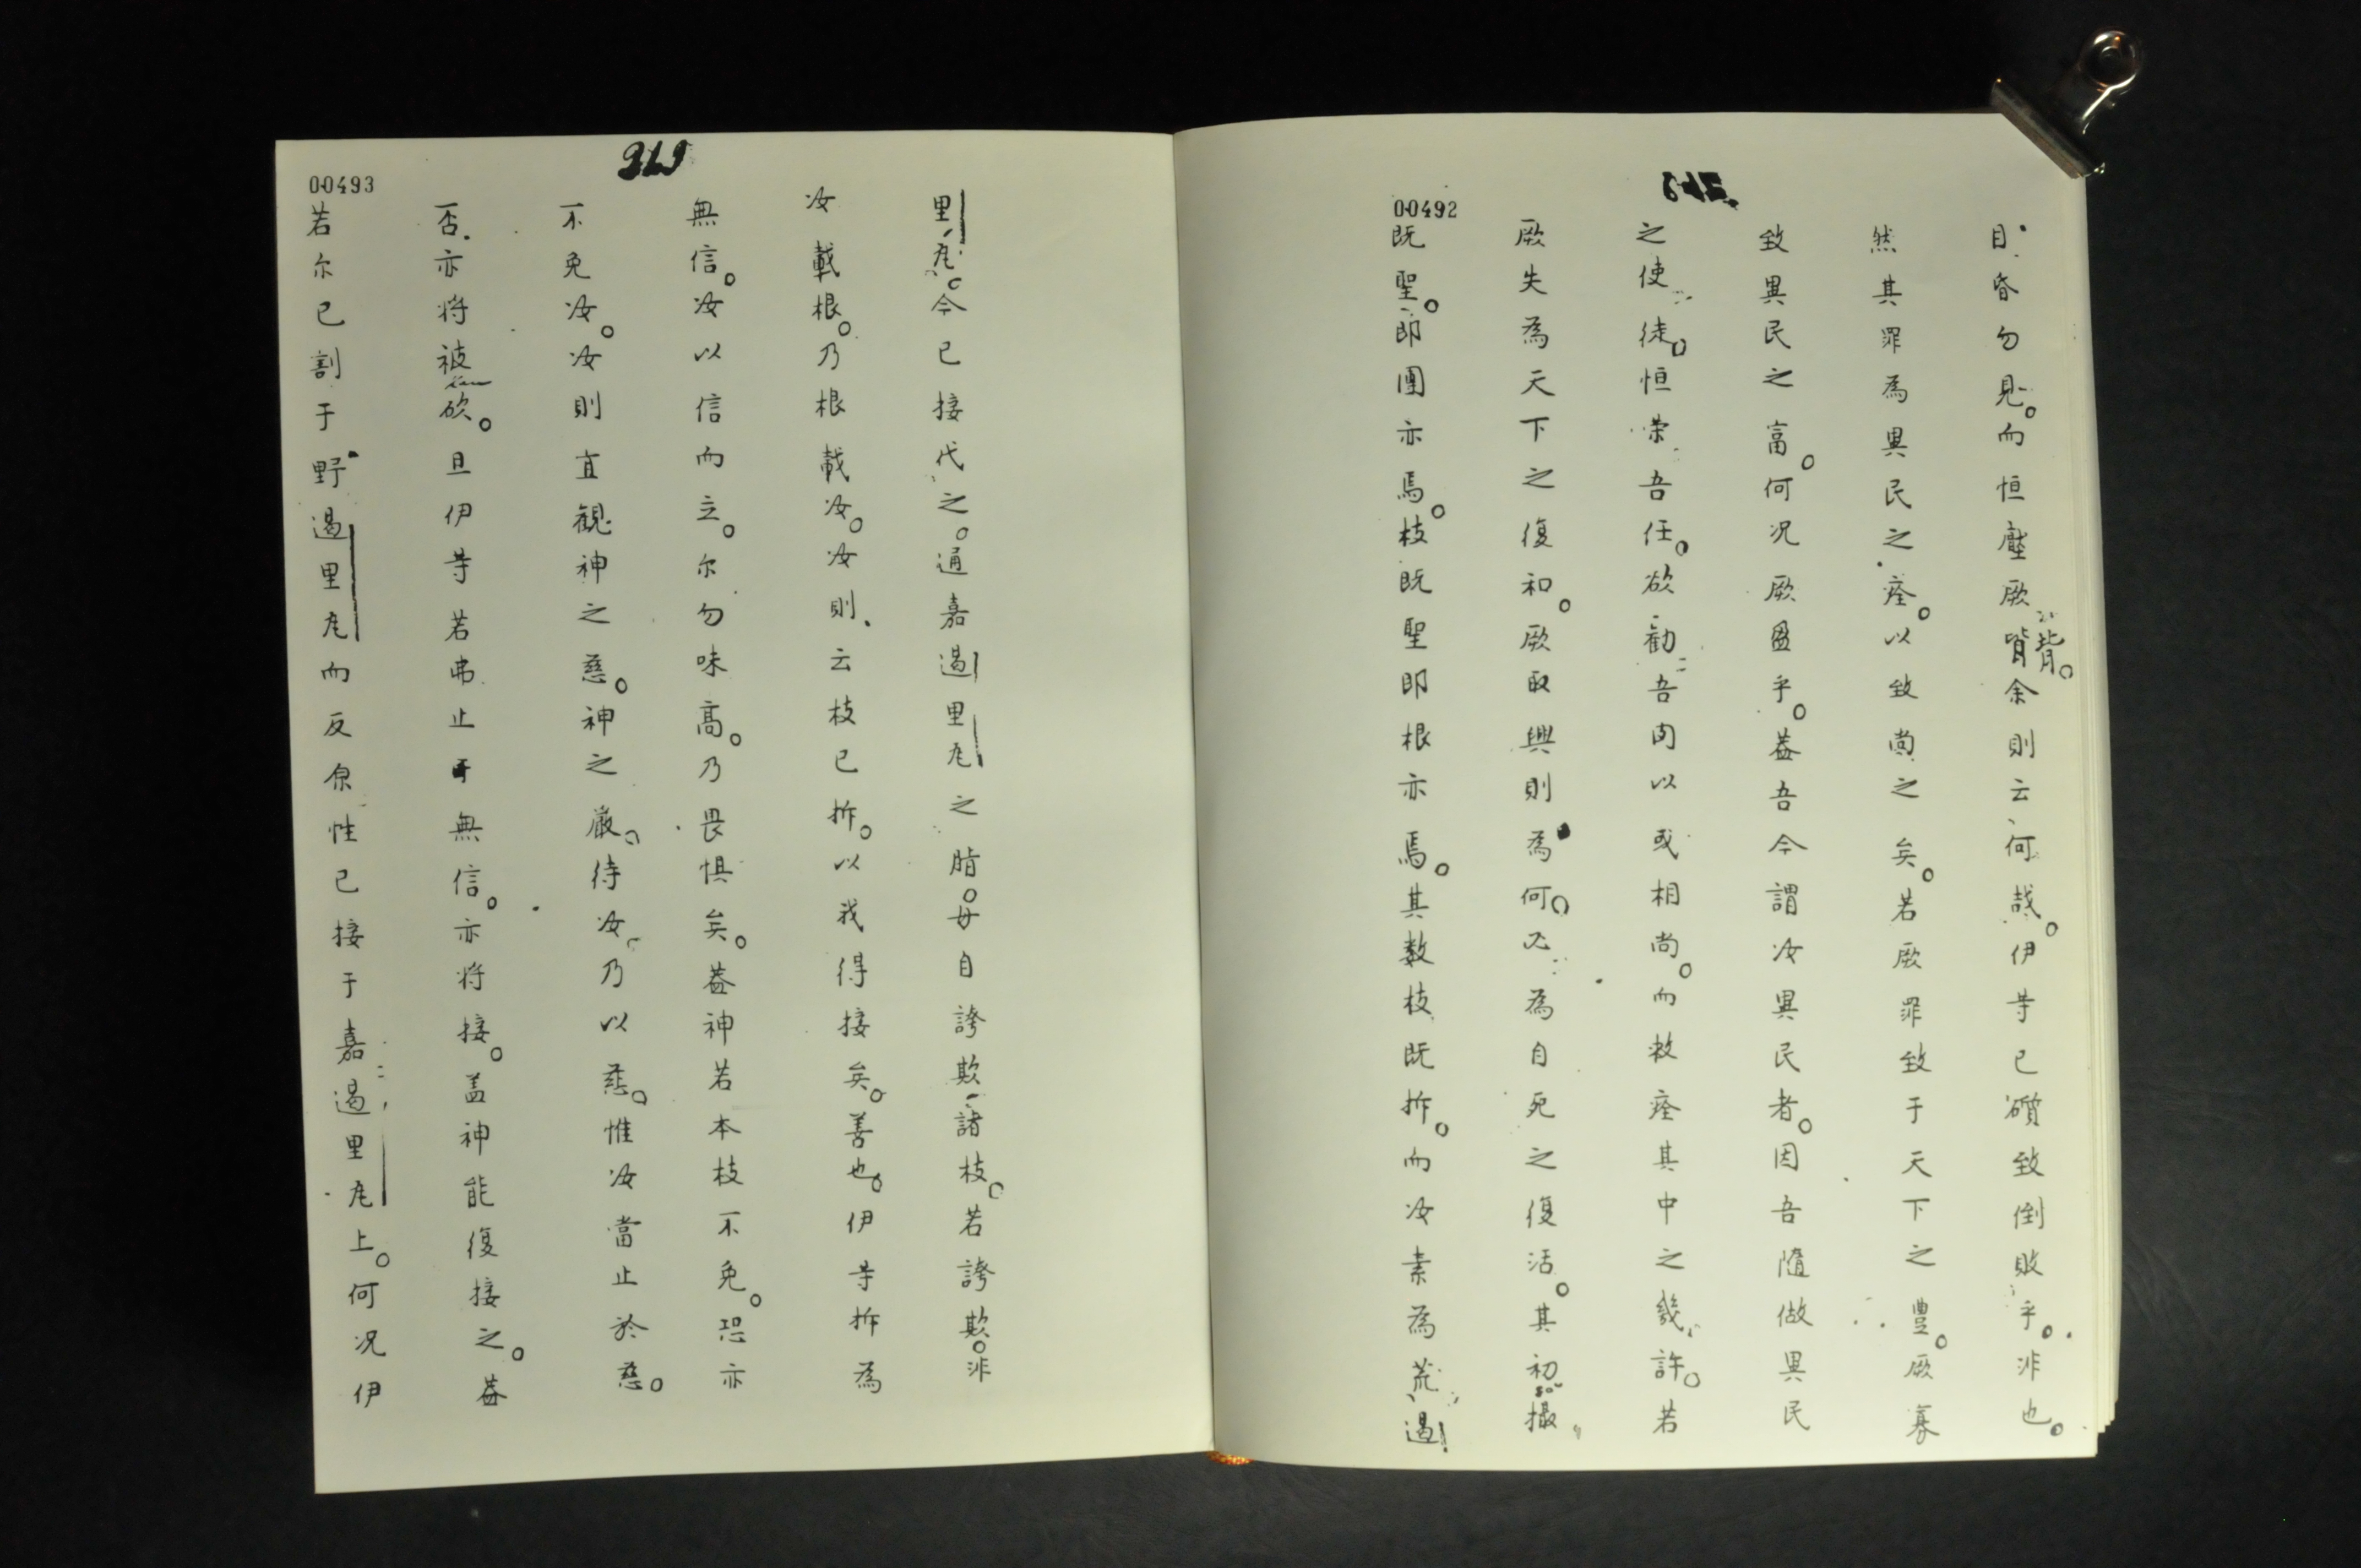 00492
目昏勿見。而恒壓厥背。余則云何哉。伊等已躓致倒敗乎。非也。
然其罪為異民之痊。以致尚之矣。若厥罪致于天下之豊。厥寡
致異民之富。何况厥盈乎。葢吾今謂汝異民者。因吾隨做異民
之使徒。恒荣吾任。欲勸吾肉以或相尚。而救痊其中之幾許。若
厥失為天下之復和。厥取興則為何。必為自死之復活。其初撮
既聖。即團亦焉。枝既聖即根亦焉。其数枝既拆。而汝素為荒遏
00493
里𠂹。今已接代之。通嘉遏里𠂹之脂。毋自誇欺諸枝。若誇欺。非
汝載根。乃根載汝。汝則云枝已拆。以我得接矣。善也。伊等拆為
無信。汝以信而立。尔勿味高。乃畏惧矣。葢神若本枝不免。恐亦
不免汝。汝則直觀神之慈。神之嚴。待汝乃以慈。惟汝當止於慈。
否亦将被砍。且伊等若弗止于無信。亦将接。盖神能復接之。葢
若尔已割于野遏里𠂹而反原性已接于嘉遏里𠂹上。何况伊